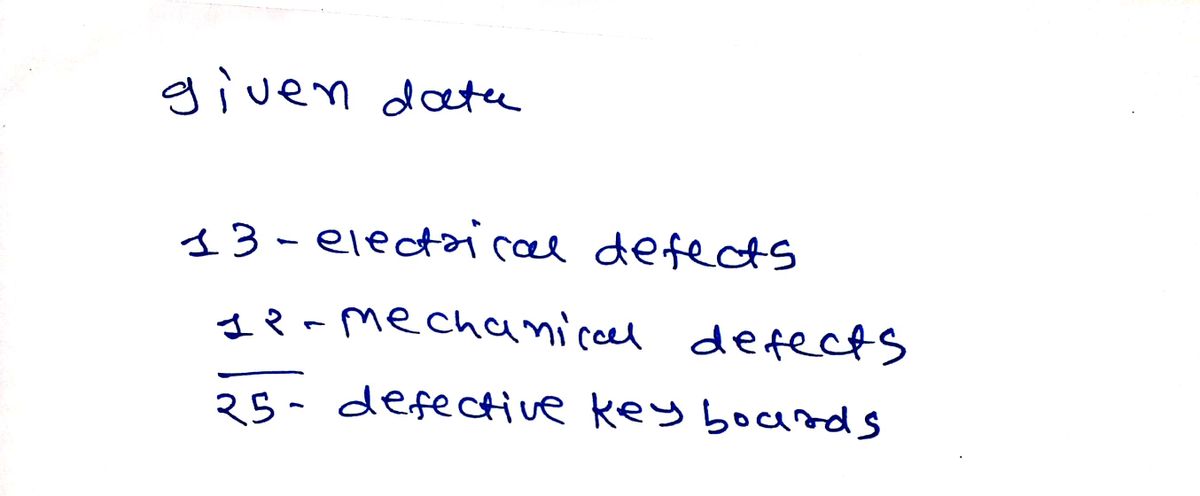 given data
13 - electrical defects
12 - mechanical defects
25 - defective key boards